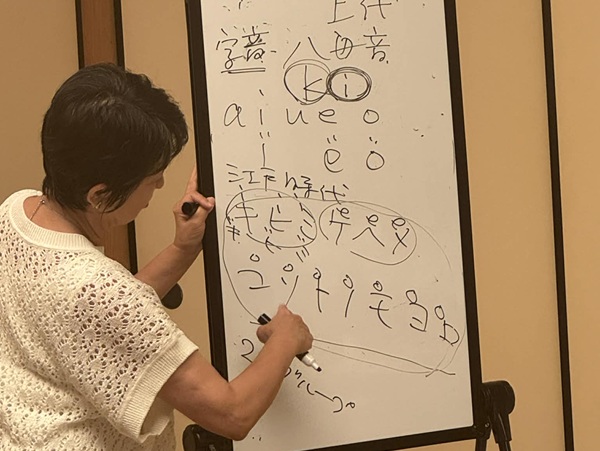 上代
字音 八母音
ki
a i u e o
ï ë ö
江戸時代
キヒミ ケヘメ
コソトノモヨロ
2グループ